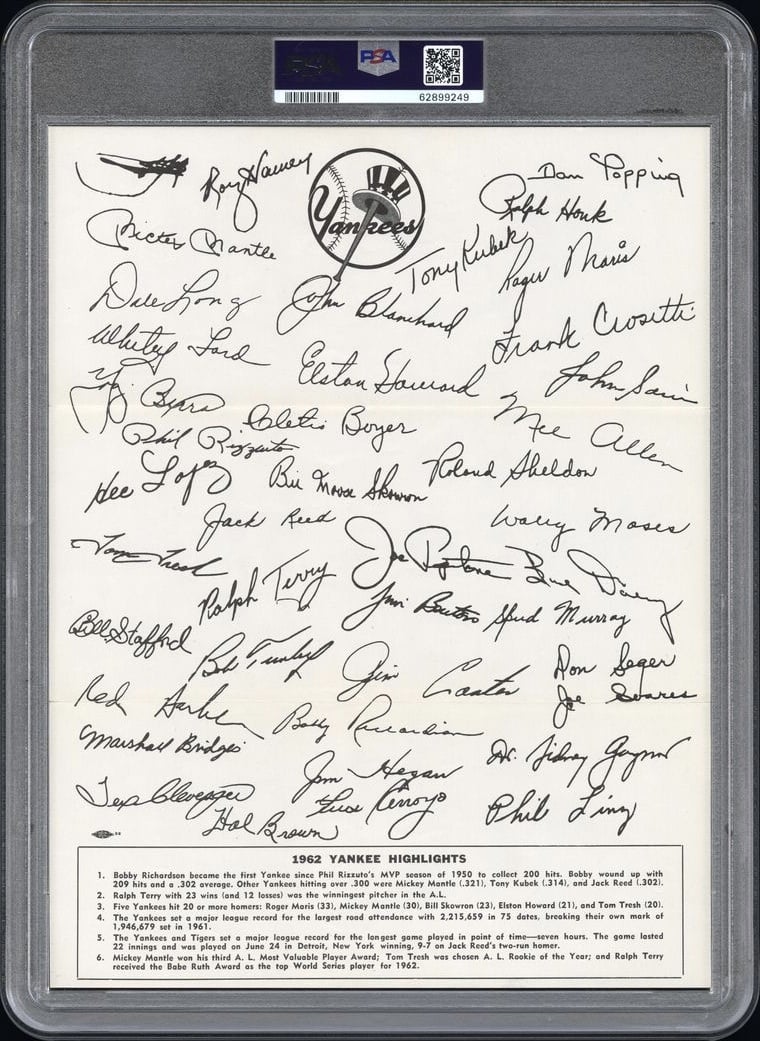 PSA
62899249
Roy Hamey
Dan Topping
Yankees
Ralph Houk
Mickey Mantle
Tony Kubek
Roger Maris
Dale Long
John Blanchard
Frank Crosetti
Whitey Ford
Elston Howard
John Sain
Yogi Berra
Cletis Boyer
Mel Allen
Phil Rizzuto
Hec Lopez
Bill Moose Skowron
Roland Sheldon
Jack Reed
Wally Moses
Tom Tresh
Joe Pepitone
Bud Daley
Ralph Terry
Jim Bouton
Spud Murray
Bill Stafford
Bob Turley
Jim Coates
Don Seger
Joe Soares
Red Barber
Bobby Richardson
Marshall Bridges
Jim Hegan
Dr. Sidney Gaynor
Tex Clevenger
Luis Arroyo
Phil Linz
Hal Brown
1962 YANKEE HIGHLIGHTS
1. Bobby Richardson became the first Yankee since Phil Rizzuto's MVP season of 1950 to collect 200 hits. Bobby wound up with
209 hits and a .302 average. Other Yankees hitting over .300 were Mickey Mantle (.321), Tony Kubek (.314), and Jack Reed (.302).
2. Ralph Terry with 23 wins (and 12 losses) was the winningest pitcher in the A.L.
3. Five Yankees hit 20 or more homers: Roger Maris (33), Mickey Mantle (30), Bill Skowron (23), Elston Howard (21), and Tom Tresh (20).
4. The Yankees set a major league record for the largest road attendance with 2,215,659 in 75 dates, breaking their own mark of
1,946,679 set in 1961.
5. The Yankees and Tigers set a major league record for the longest game played in point of time—seven hours. The game lasted
22 innings and was played on June 24 in Detroit, New York winning, 9-7 on Jack Reed's two-run homer.
6. Mickey Mantle won his third A. L. Most Valuable Player Award; Tom Tresh was chosen A. L. Rookie of the Year; and Ralph Terry
received the Babe Ruth Award as the top World Series player for 1962.